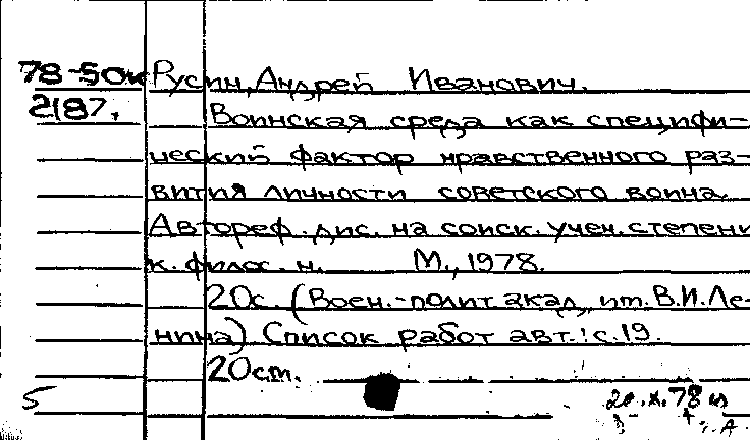 78-50к Русин, Андрей Иванович.
2187. Воинская среда как специфи-
ческий фактор нравственного раз-
вития личности советского воина.
Автореф. дис. на соиск. учен. степени
к. филос. н. М., 1978.
20с. (Воен.-полит. акад. им. В.И. Ле-
нина) Список работ авт.: с. 19.
20 cm.
5